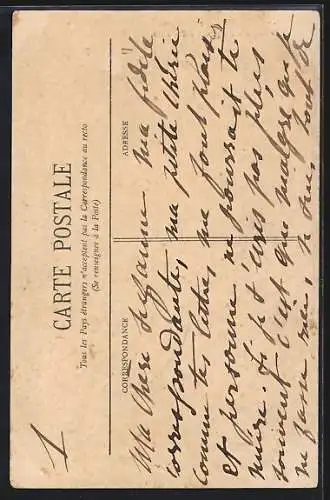 1
CARTE POSTALE
Tous les Pays étrangers n'acceptent pas la Correspondance au recto
(Se renseigner à la Poste)
CORRESPONDANCE
ADRESSE
Ma Chère Suzanne ma fidèle
correspondante, ma petite chérie
comme tes lettres me font plaisir
et personne ne pourrait te
nuire. Si je t'écris pas plus
souvent c'est que malgré que je
ne fasse rien,